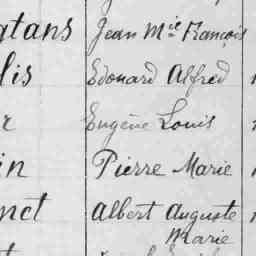 atans Jean Mie François
lis Edouard Alfred
r Eugène Louis
in Pierre Marie
nct Albert Auguste
Marie